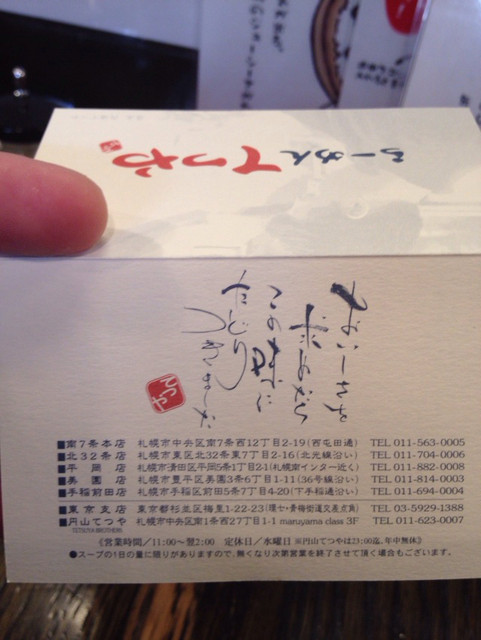 らーめん てつや
おいしさを
求めながら
この味に
たどり
つきました
てつや
■南7条本店 札幌市中央区南7条西12丁目2-19(西屯田通) TEL 011-563-0005
■北32条店 札幌市東区北32条東7丁目2-16(北光線沿い) TEL 011-704-0006
■平岡店 札幌市清田区平岡5条1丁目2-1(札幌南インター近く) TEL 011-882-0008
■美園店 札幌市豊平区美園3条6丁目1-11(36号線沿い) TEL 011-814-0003
■手稲前田店 札幌市手稲区前田5条7丁目4-20(下手稲通沿い) TEL 011-694-0004
■東京支店 東京都杉並区梅里1-22-23(環七・青梅街道交差点角) TEL 03-5929-1388
■円山てつや 札幌市中央区南1条西27丁目1-1 maruyama class 3F TEL 011-623-0007
TETSUYA BROTHERS
《営業時間／11:00〜翌2:00 定休日／水曜日 ※円山てつやは23:00迄、年中無休》
●スープの1日の量に限りがありますので、無くなり次第営業を終了させて頂く場合もございます。